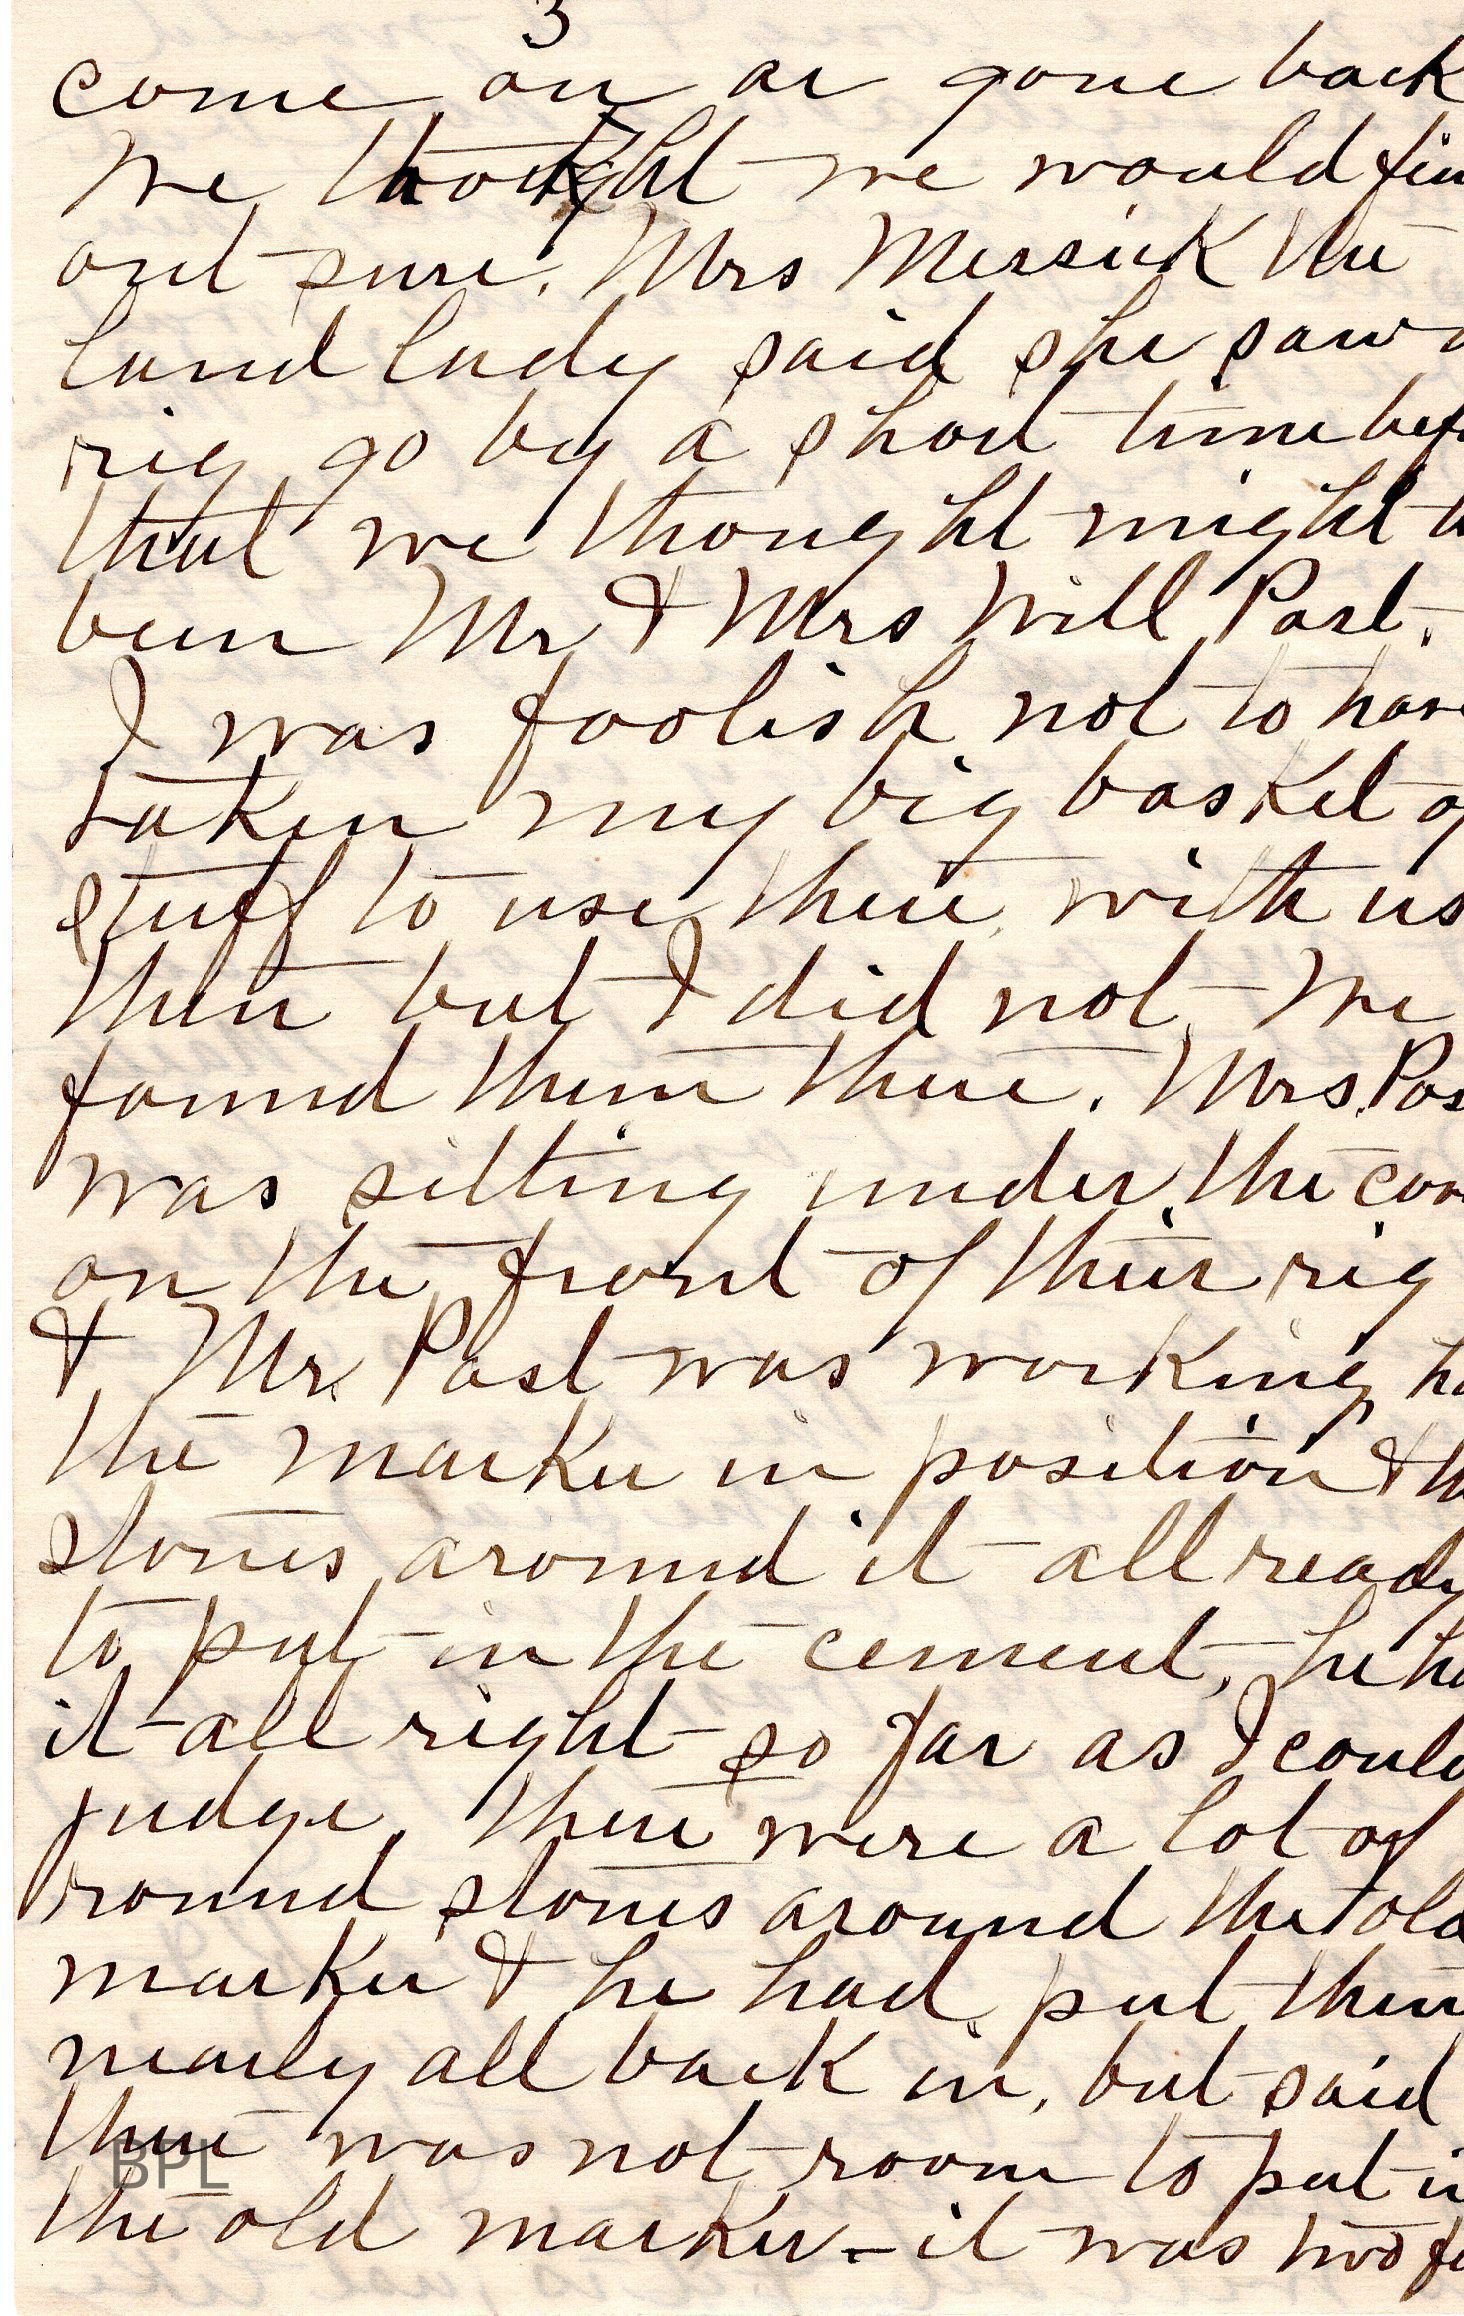 3
come on or gone back
We thought we would fin
out sure. Mrs Messick the
land lady said she saw a
rig go by a short time bef
that we thought might
been Mr & Mrs Will Post.
I was foolish not to hav
taken my big basket of
stuff to use there, with us
then but I did not. We
found them there. Mrs. Pos
was sitting under the cov
on the front of their rig
& Mr. Post was working, ha
the marker in position & th
stones around it all ready
to put in the cement, he ha
it all right so far as I could
judge. There were a lot of
round stones around the old
marker & he had put them
nearly all back in, but said
there was not room to put in
the old marker - it was two fe
BPL